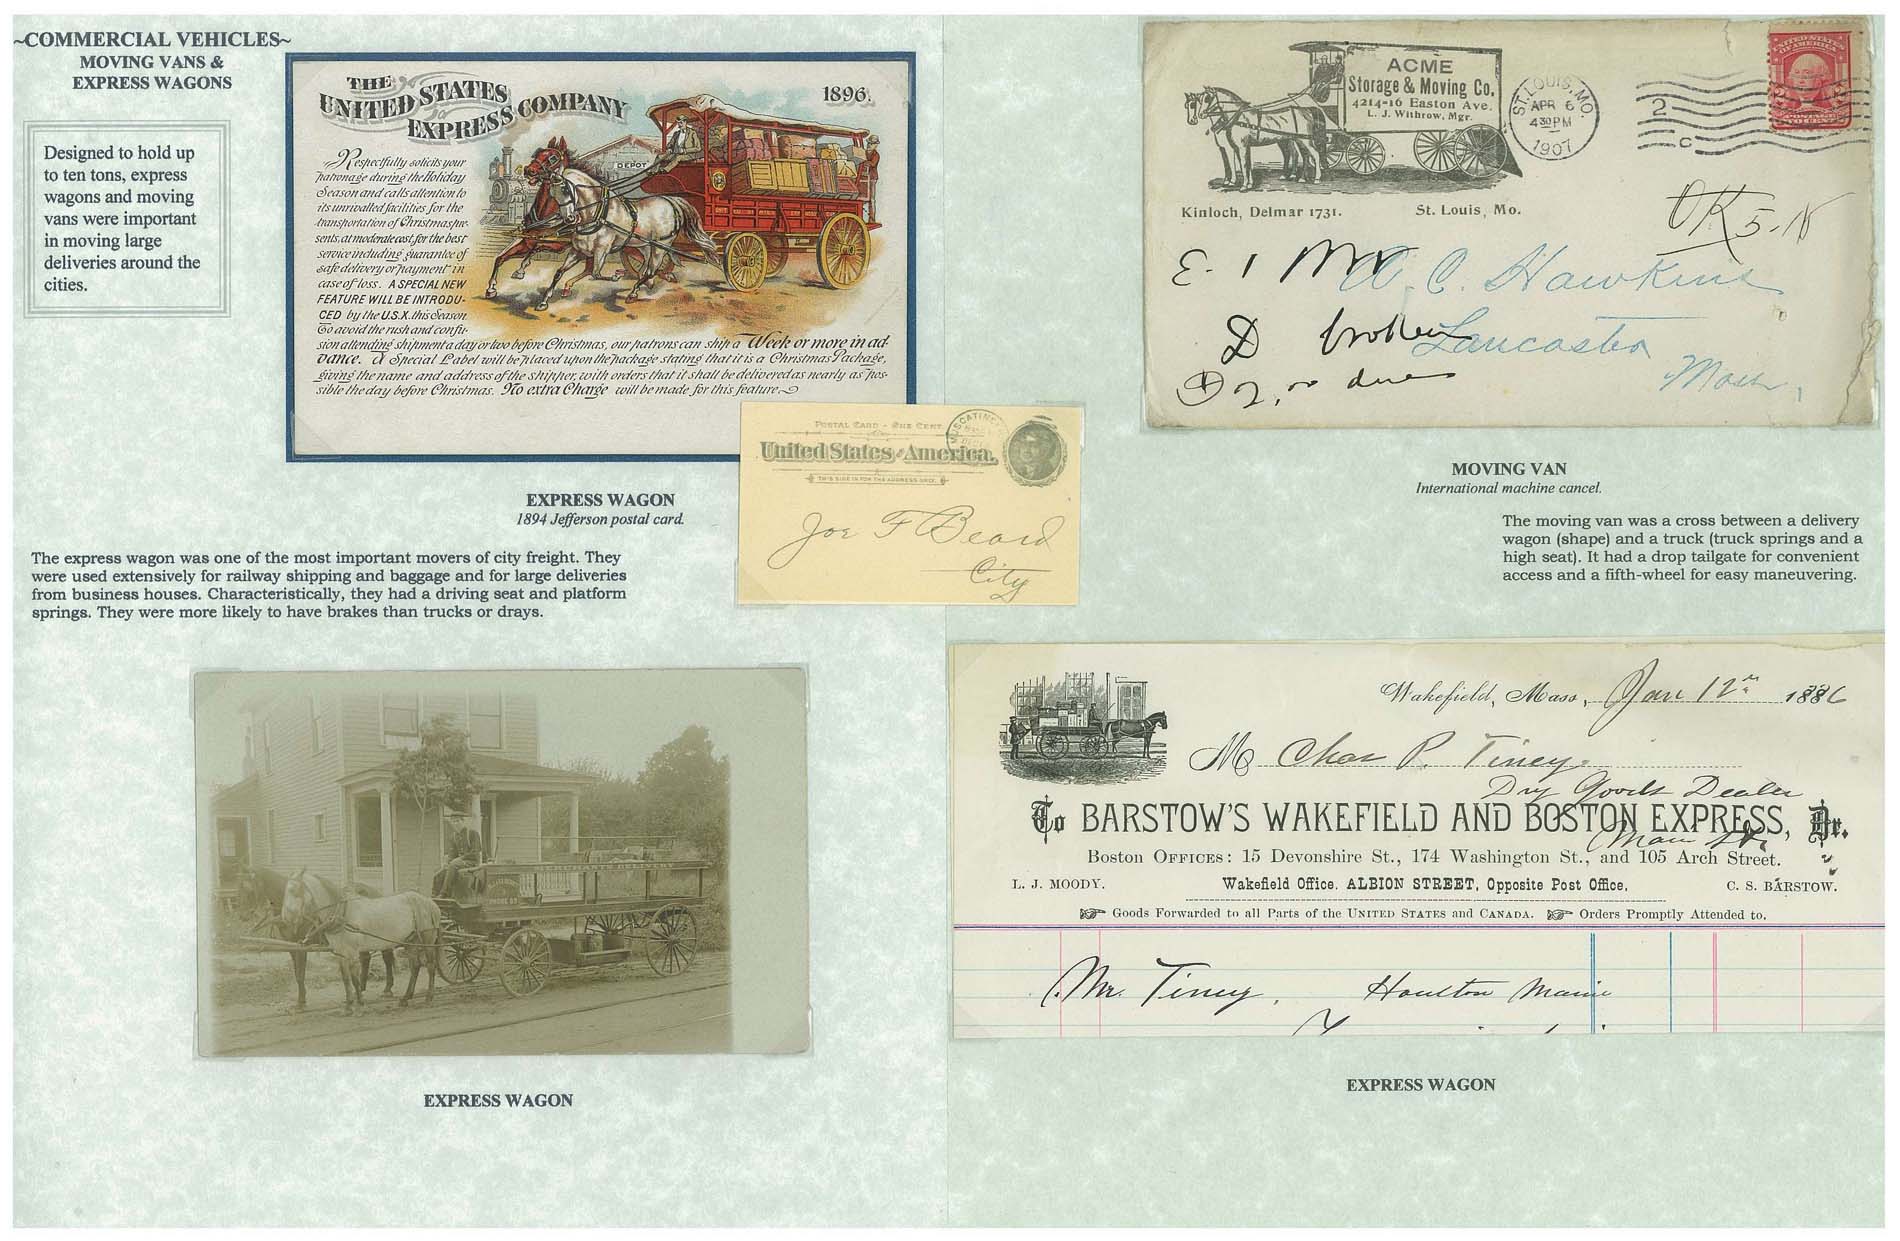 ~COMMERCIAL VEHICLES~
MOVING VANS &
EXPRESS WAGONS
Designed to hold up
to ten tons, express
wagons and moving
vans were important
in moving large
deliveries around the
cities.
THE
UNITED STATES
EXPRESS COMPANY
1896.
DEPOT
Respectfully solicits your
patronage during the Holiday
Season and calls attention to
its unrivalled facilities for the
transportation of Christmas pre-
sents, at moderate cost, for the best
service including guarantee of
safe delivery or payment in
case of loss. A SPECIAL NEW
FEATURE WILL BE INTRODU-
CED by the U.S.X. this Season
To avoid the rush and confu-
sion attending shipment a day or two before Christmas, our patrons can ship a Week or more in ad-
vance. A Special Label will be placed upon the package stating that it is a Christmas Package,
giving the name and address of the shipper, with orders that it shall be delivered as nearly as pos-
sible the day before Christmas. No extra Charge will be made for this feature.
EXPRESS WAGON
1894 Jefferson postal card.
POSTAL CARD - ONE CENT.
United States of America.
THIS SIDE IS FOR THE ADDRESS ONLY.
MUSCATINE
Joe F Beard
City
The express wagon was one of the most important movers of city freight. They
were used extensively for railway shipping and baggage and for large deliveries
from business houses. Characteristically, they had a driving seat and platform
springs. They were more likely to have brakes than trucks or drays.
EXPRESS WAGON
ACME
Storage & Moving Co.
4214-16 Easton Ave.
L. J. Withrow, Mgr.
Kinloch, Delmar 1731. St. Louis, Mo.
ST. LOUIS, MO.
APR 6
4 30 PM
1907
2
C
UNITED STATES
OF AMERICA
POSTAGE
TWO CENTS
OK 5-18
E-1 Mr C. Hawkins
D broken Lancaster
Mass,
MOVING VAN
International machine cancel.
The moving van was a cross between a delivery
wagon (shape) and a truck (truck springs and a
high seat). It had a drop tailgate for convenient
access and a fifth-wheel for easy maneuvering.
Wakefield, Mass, Jan 12th 1886
M Chas P. Tiney
Dry Goods Dealer
To BARSTOW'S WAKEFIELD AND BOSTON EXPRESS, Dr.
Main St
Boston OFFICES: 15 Devonshire St., 174 Washington St., and 105 Arch Street.
L. J. MOODY. Wakefield Office, ALBION STREET, Opposite Post Office, C. S. BARSTOW.
Goods Forwarded to all Parts of the UNITED STATES and CANADA. Orders Promptly Attended to.
Mr. Tiney, Houlton Maine
EXPRESS WAGON